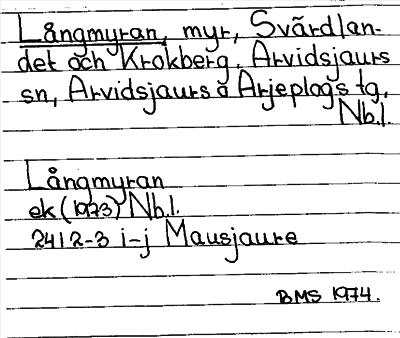 Långmyran, myr, Svärdlan-
det och Krokberg, Arvidsjaurs
sn, Arvidsjaurs o Arjeplogs tg.
Nb.l.
Långmyran
ek (1973) Nb.l.
24I 2-3 i-j Mausjaure
BMS 1974.